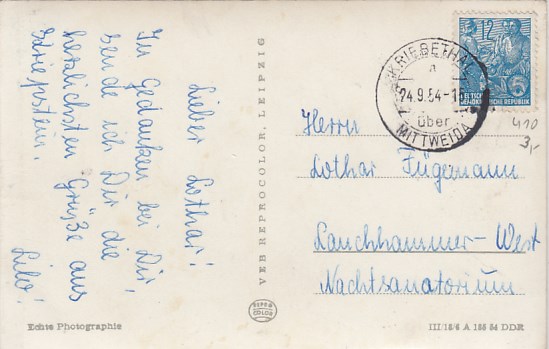 Lieber Lothar!
In Gedanken bei Dir,
sende ich Dir die
herzlichsten Grüße aus
Kriebstein,
Lilo!
VEB REPROCOLOR, LEIPZIG
REPRO
COLOR
Echte Photographie
KRIEBETHAL
a
24.9.54-1
über
MITTWEIDA
12
DEUTSCHE
DEMOKRATISCHE REPUBLIK
410
3,-
Herrn
Lothar Fügemann
Lauchhammer-West
Nachtsanatorium
III/18/6 A 155 54 DDR